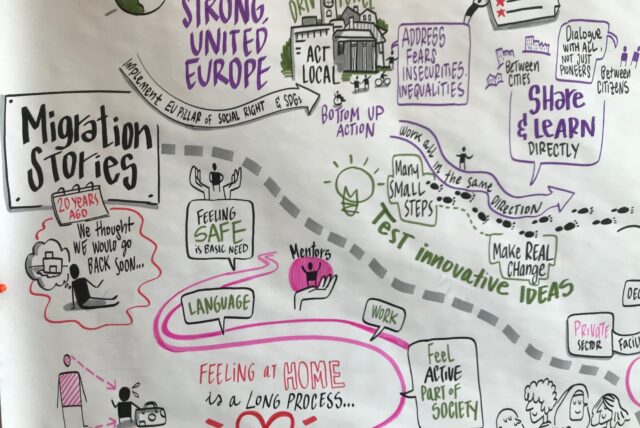 STRONG,
UNITED
EUROPE
ACT
LOCAL
ADDRESS
FEARS
INSECURITIES.
INEQUALITIES
Dialogue
WITH ALL,
NOT JUST
PIONEERS
Between
CITIES
Between
CITIZENS
Share
& LEARN
DIRECTLY
Implement EU PILLAR of SOCIAL RIGHT & SDGs
BOTTOM UP
ACTION
Work all in the same
DIRECTION
Many
SMALL
STEPS
Make REAL
CHANGE
TEST innovative IDEAS
Migration
STORIES
20 YEARS
AGO
We thought
WE WOULD GO
BACK SOON...
FEELING
SAFE
is BASIC NEED
Mentors
LANGUAGE
WORK
FEELING AT HOME
is A LONG PROCESS...
Feel
ACTIVE
PART OF
SOCIETY
PRIVATE
SECTOR